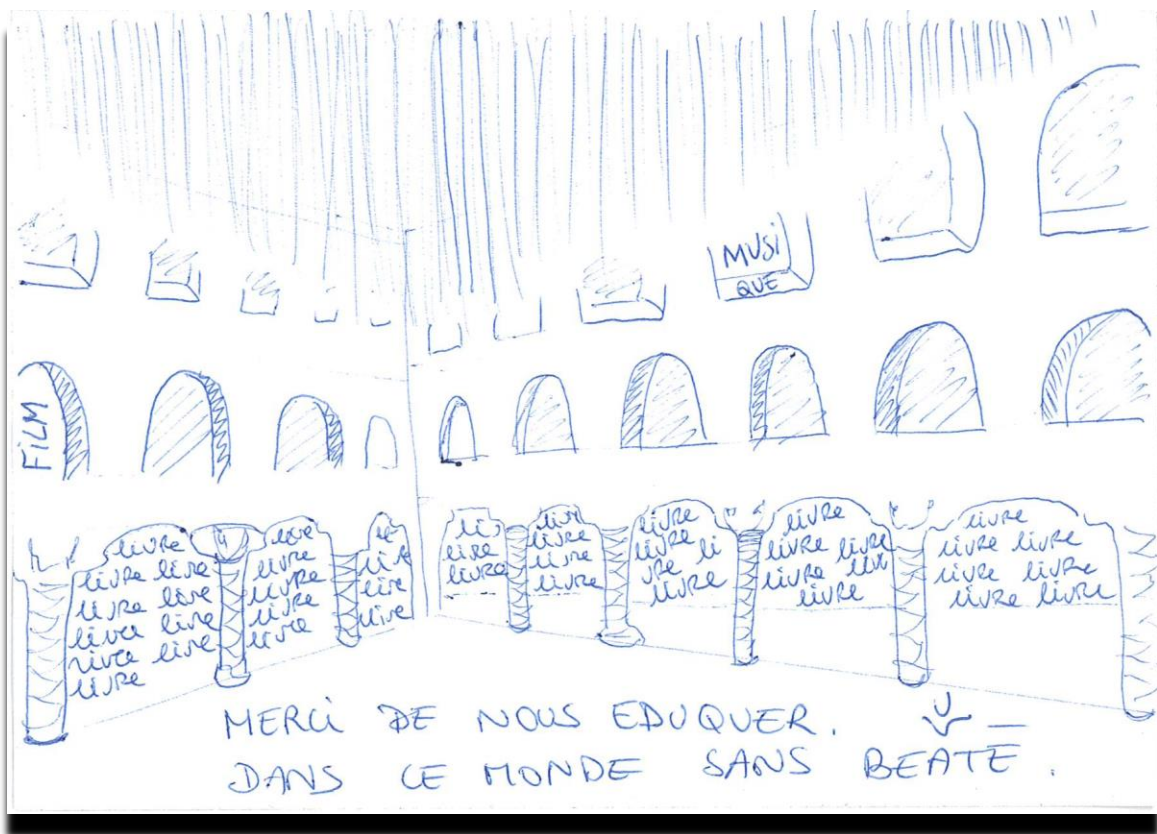 MUSI
QUE
FILM
livre
livre livre
livre livre
livre livre
livre livre
livre
livre
livre
livre
livre
livre
li
livre
livre
livre
livre
livre
livre
livre
vre li
livre
livre
livre livre
livre
livre
livre
livre livre
livre livre
livre livre
MERCI DE NOUS EDUQUER.
U
DANS CE MONDE SANS BEATE.